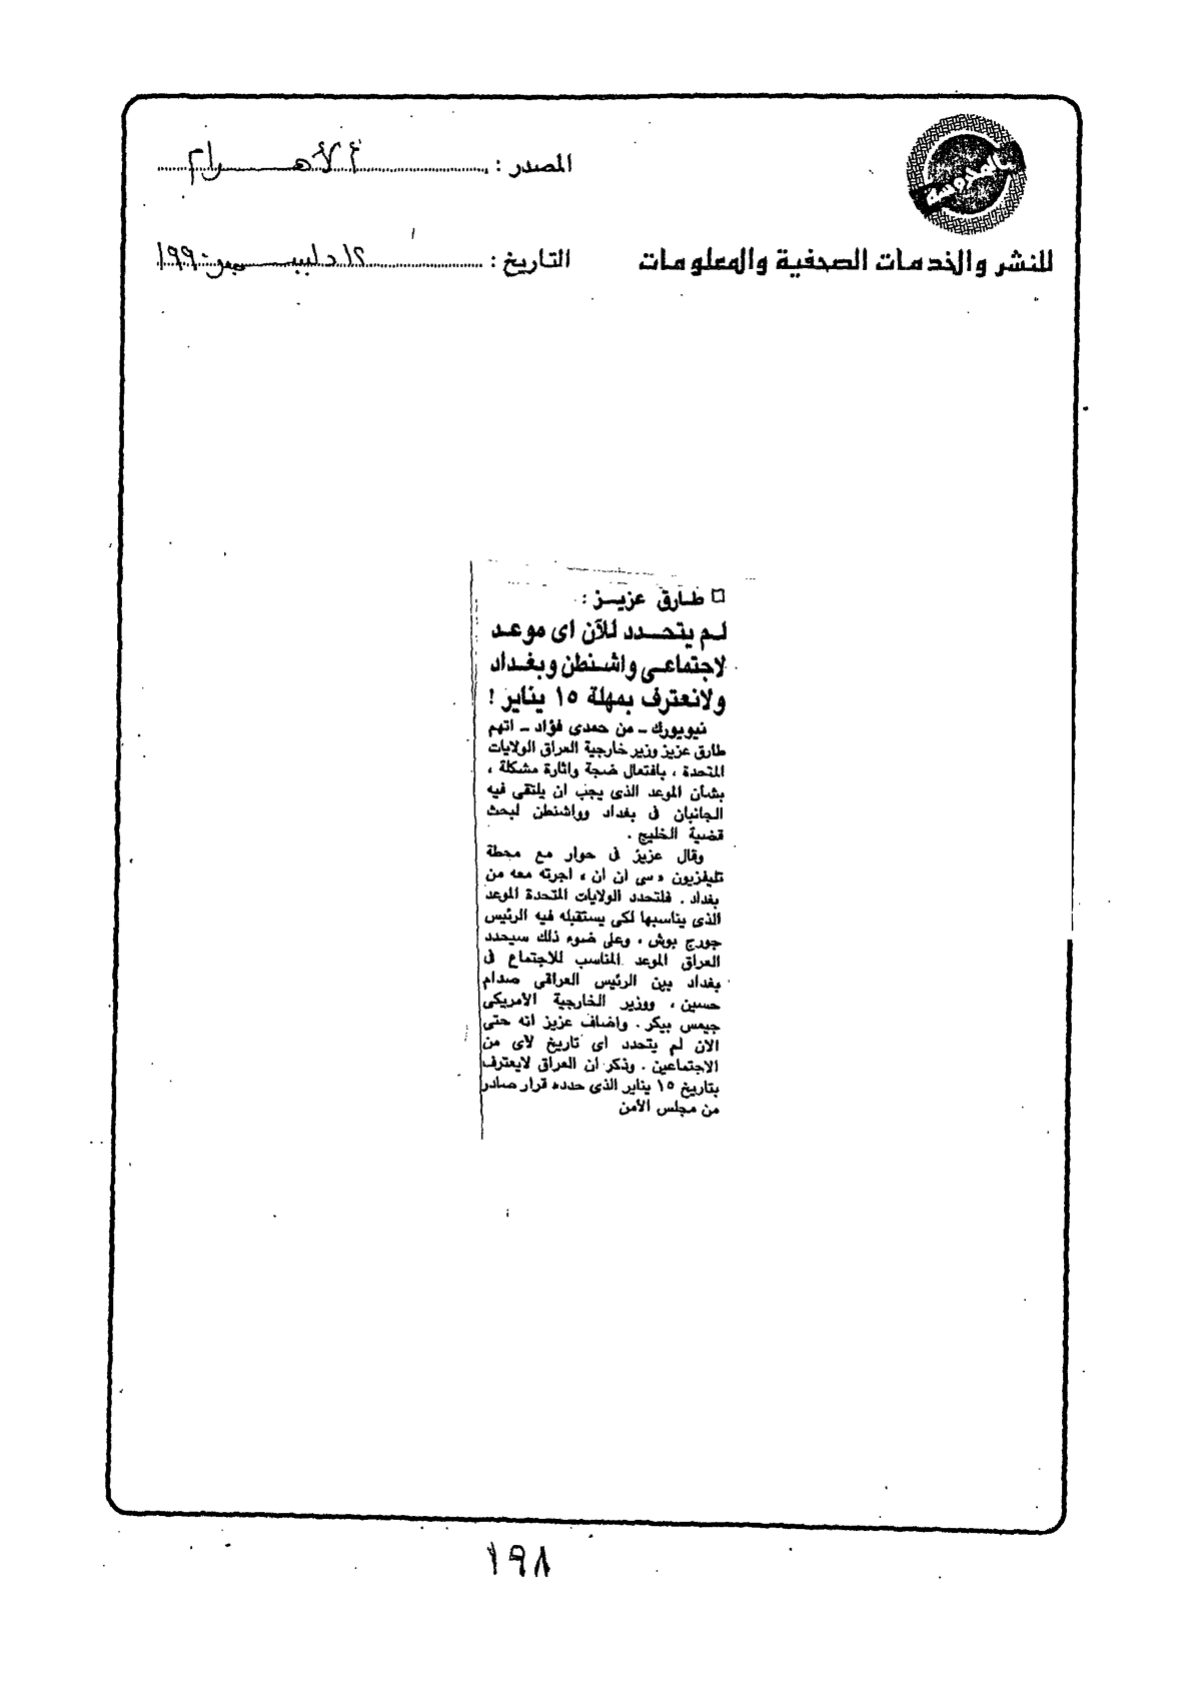 المصدر : الأهرام
للنشر والخدمات الصحفية والمعلومات
التاريخ : ١٢ ديسمبر ١٩٩٠
طارق عزيز :
لم يتحدد للآن اى موعد
لاجتماعى واشنطن وبغداد
ولانعترف بمهلة ١٥ يناير !
نيويورك ـ من حمدى فؤاد ـ اتهم
طارق عزيز وزير خارجية العراق الولايات
المتحدة ، بافتعال ضجة واثارة مشكلة ،
بشأن الموعد الذى يجب ان يلتقى فيه
الجانبان فى بغداد وواشنطن لبحث
قضية الخليج .
وقال عزيز فى حوار مع محطة
تليفزيون « سى ان ان » اجرته معه من
بغداد . فلتحدد الولايات المتحدة الموعد
الذى يناسبها لكى يستقبله فيه الرئيس
جورج بوش ، وعلى ضوء ذلك سيحدد
العراق الموعد المناسب للاجتماع فى
بغداد بين الرئيس العراقى صدام
حسين ، ووزير الخارجية الأمريكى
جيمس بيكر . واضاف عزيز انه حتى
الان لم يتحدد اى تاريخ لاى من
الاجتماعين . وذكر ان العراق لايعترف
بتاريخ ١٥ يناير الذى حدده قرار صادر
من مجلس الأمن
١٩٨